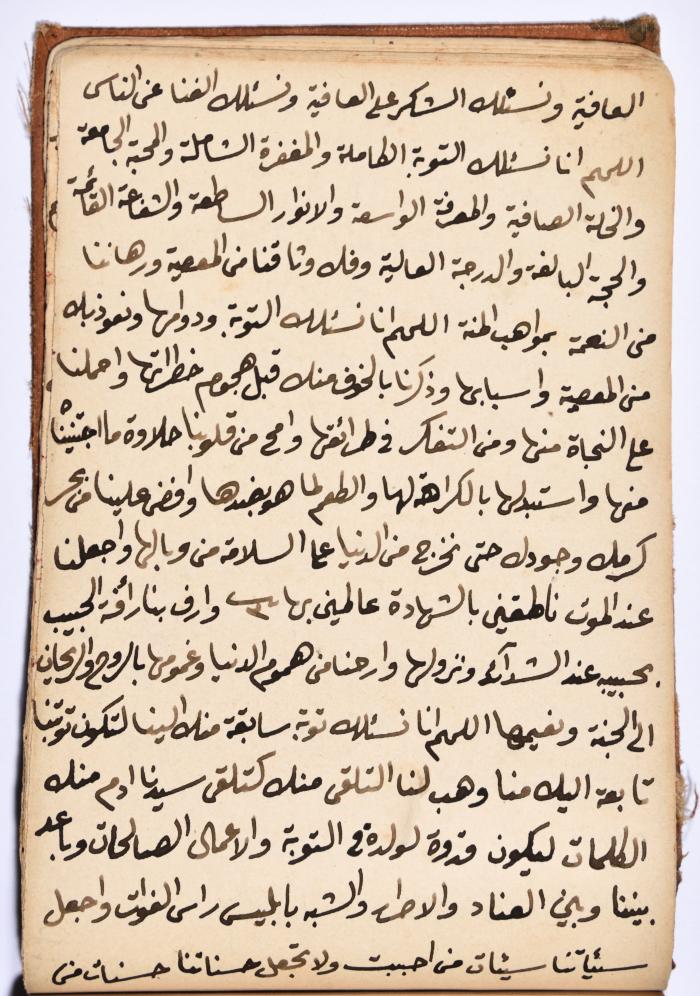 العافية ونسئلك الشكر على العافية ونسئلك الغنا عن الناس
اللهم انا نسئلك التوبة الكاملة والمغفرة الشاملة والمحبة الجامعة
والخلة الصافية والمعرفة الواسعة والانوار الساطعة والشفاعة القائمة
والحجة البالغة والدرجة العالية وفك وثاقنا من المعصية ورهاننا
من النعمة بمواهب المنة اللهم انا نسئلك التوبة ودوامها ونعوذ بك
من المعصية واسبابها وذكرنا بالخوف منك قبل هجوم خطراتها واحملنا
على النجاة منها ومن التفكر في طرائقها وامح من قلوبنا حلاوة ما اجتنيناه
منها واستبدلها بالكراهة لها والطعم لما هو بضدها وافض علينا من بحر
كرمك وجودك حتى نخرج من الدنيا على السلامة من وبالها واجعلنا
عند الموت ناطقين بالشهادة عالمين بها وارف بنا رافة الحبيب
بحبيبه عند الشدآئد ونزولها وارحنا من هموم الدنيا وغمومها بالروح والريحان
الى الجنة ونعيمها اللهم انا نسئلك توبة سابقة منك الينا لتكون توبتنا
تابعة اليك منا وهب لنا التلقى منك كتلقى سيدنا ادم منك
الكلمات ليكون قدوة لولده في التوبة والاعمال الصالحات وباعد
بيننا وبين العناد والاصرار والشبه بابليس راس الغوات واجعل
سئياتنا سيئات من احببت ولا تجعل حسناتنا حسنات من